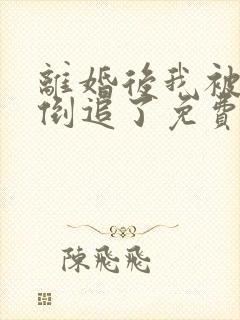 離婚後我被
倒追了免費
陳飛飛